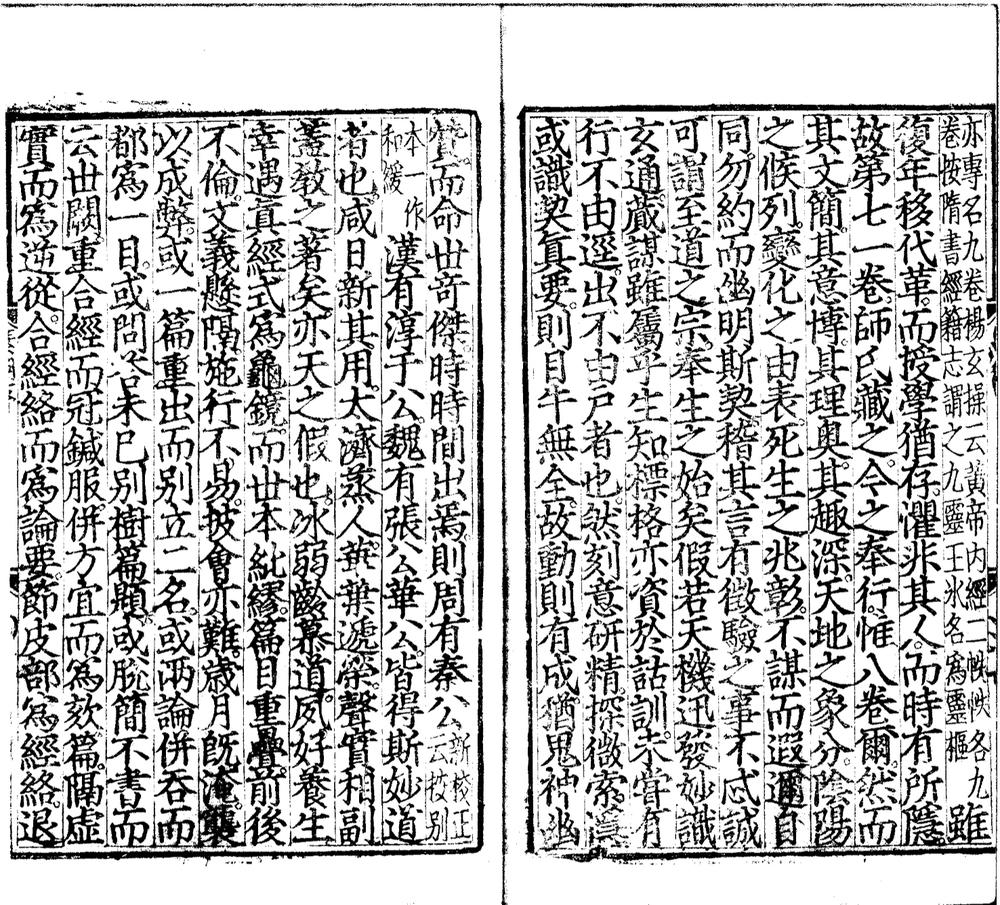 亦專名九卷楊玄操云黃帝內經二帙帙各九
卷按隋書經籍志謂之九靈王冰名為靈樞
雖
復年移代革而授學猶存懼非其人而時有所隱
故第七一卷師氏藏之今之奉行惟八卷爾然而
其文簡其意博其理奧其趣深天地之象分陰陽
之候列變化之由表死生之兆彰不謀而遐邇自
同勿約而幽明斯契稽其言有徵驗之事不忒誠
可謂至道之宗奉生之始矣假若天機迅發妙識
玄通蕆謀雖屬乎生知標格亦資於詁訓未嘗有
行不由逕出不由戶者也然刻意研精探微索隱
或識契真要則目牛無全故動則有成猶鬼神幽
贊而命世奇傑時時間出焉則周有秦公
新校正
云按別
本一作
和緩
漢有淳于公魏有張公華公皆得斯妙道
者也咸日新其用大濟蒸人華葉遞榮聲實相副
蓋教之著矣亦天之假也冰弱齡慕道夙好養生
幸遇真經式為龜鏡而世本紕繆篇目重疊前後
不倫文義懸隔施行不易披會亦難歲月既淹襲
以成弊或一篇重出而別立二名或兩論併吞而
都為一目或問答未已別樹篇題或脫簡不書而
云世闕重合經而冠鍼服併方宜而為欬篇隔虛
實而為逆從合經絡而為論要節皮部為經絡退